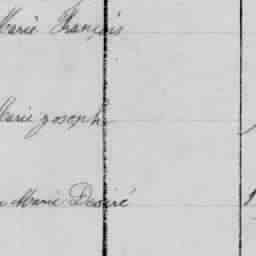 Marie François
Marie Joseph
Marie Desiré